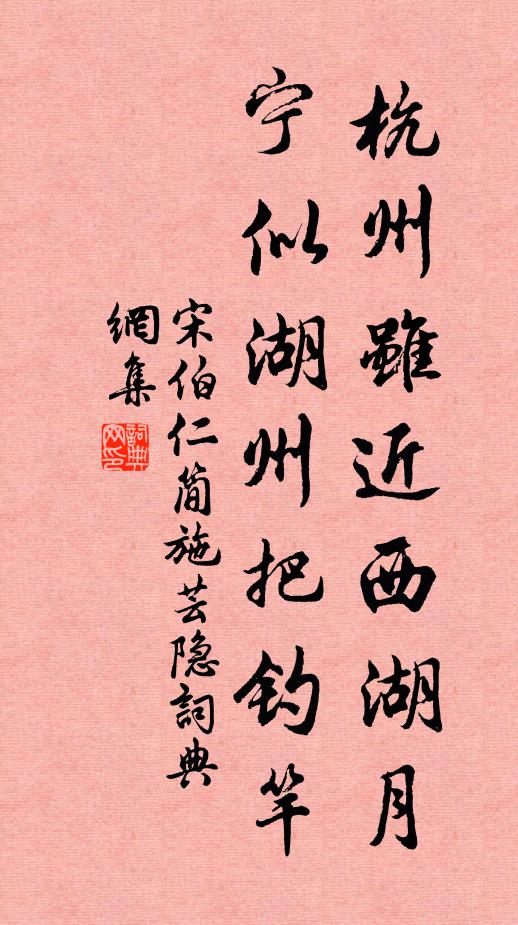 杭州雖近西湖月
宁似湖州把钓竿
宋伯仁简施芸隐詞典
網集
詞典网印